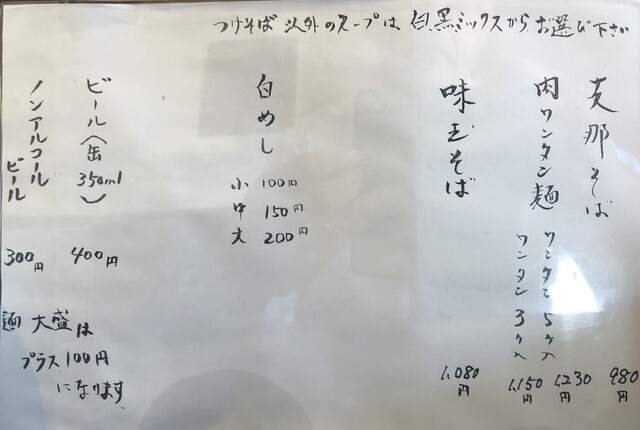 つけそば以外のスープは 白、黒ミックスからお選び下さい
支那そば 980円
肉ワンタン麺
ワンタン5ケ入 1,230円
ワンタン3ケ入 1,150円
味玉そば 1,080円
白めし
小 100円
中 150円
大 200円
ビール(缶350ml) 400円
ノンアルコールビール 300円
麺大盛は
プラス100円
になります